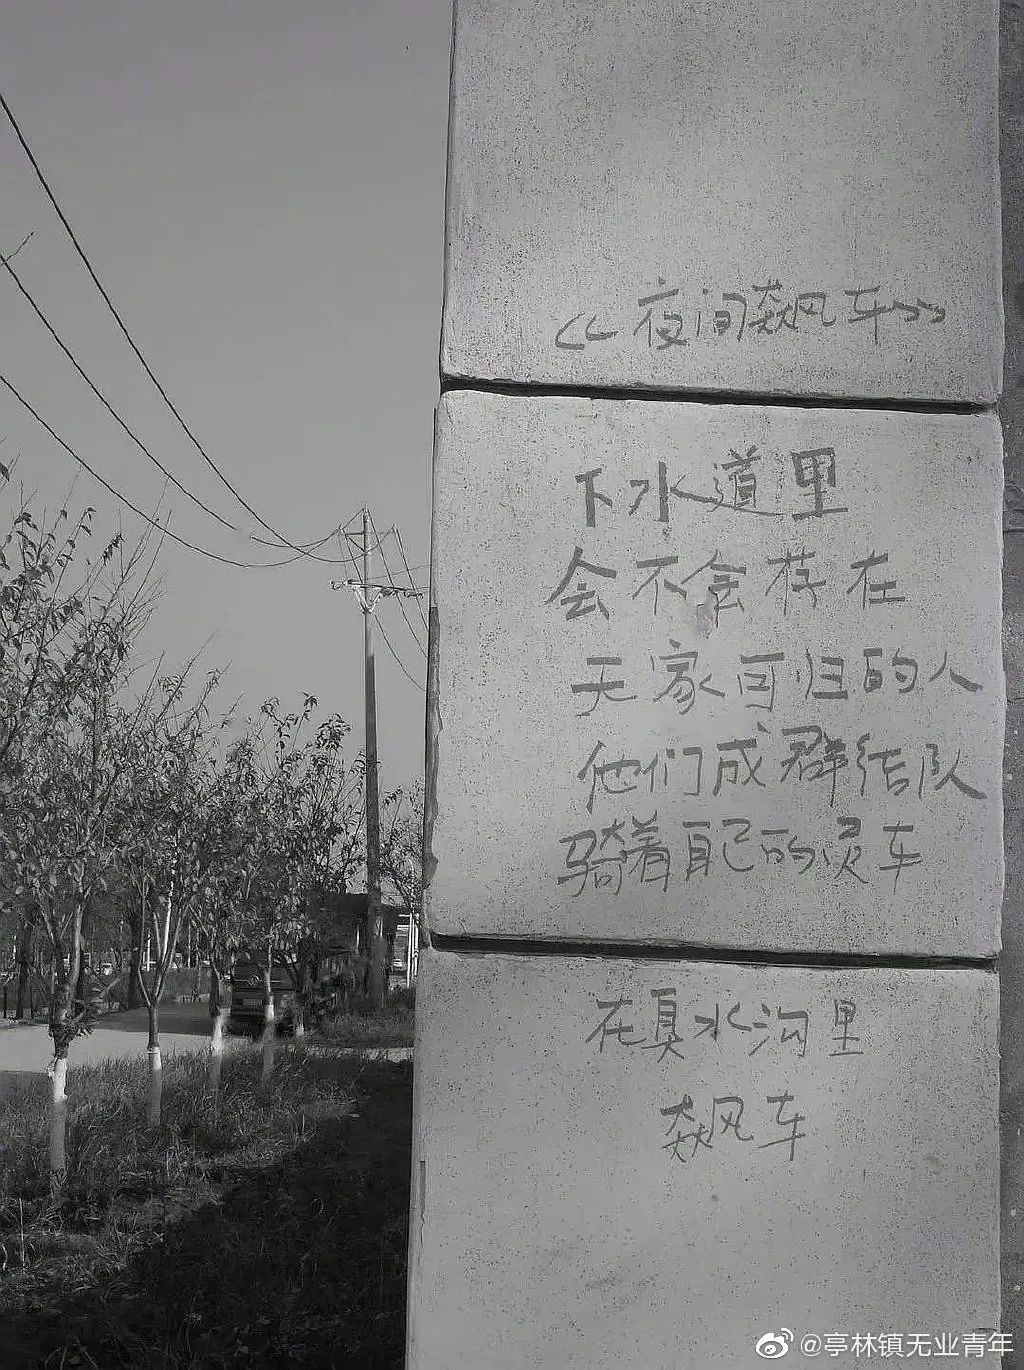 《夜间飙车》
下水道里
会不会存在
无家可归的人
他们成群结队
骑着自己的灵车
在臭水沟里
飙车
@亭林镇无业青年